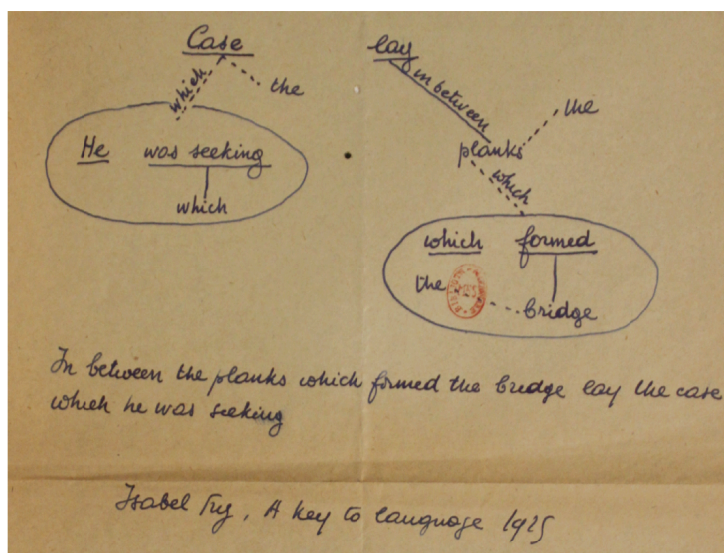 Case lay
which the in between the
He was seeking planks
which which
which formed
the bridge
In between the planks which formed the bridge lay the case
which he was seeking
Isabel Fry, A key to language 1925